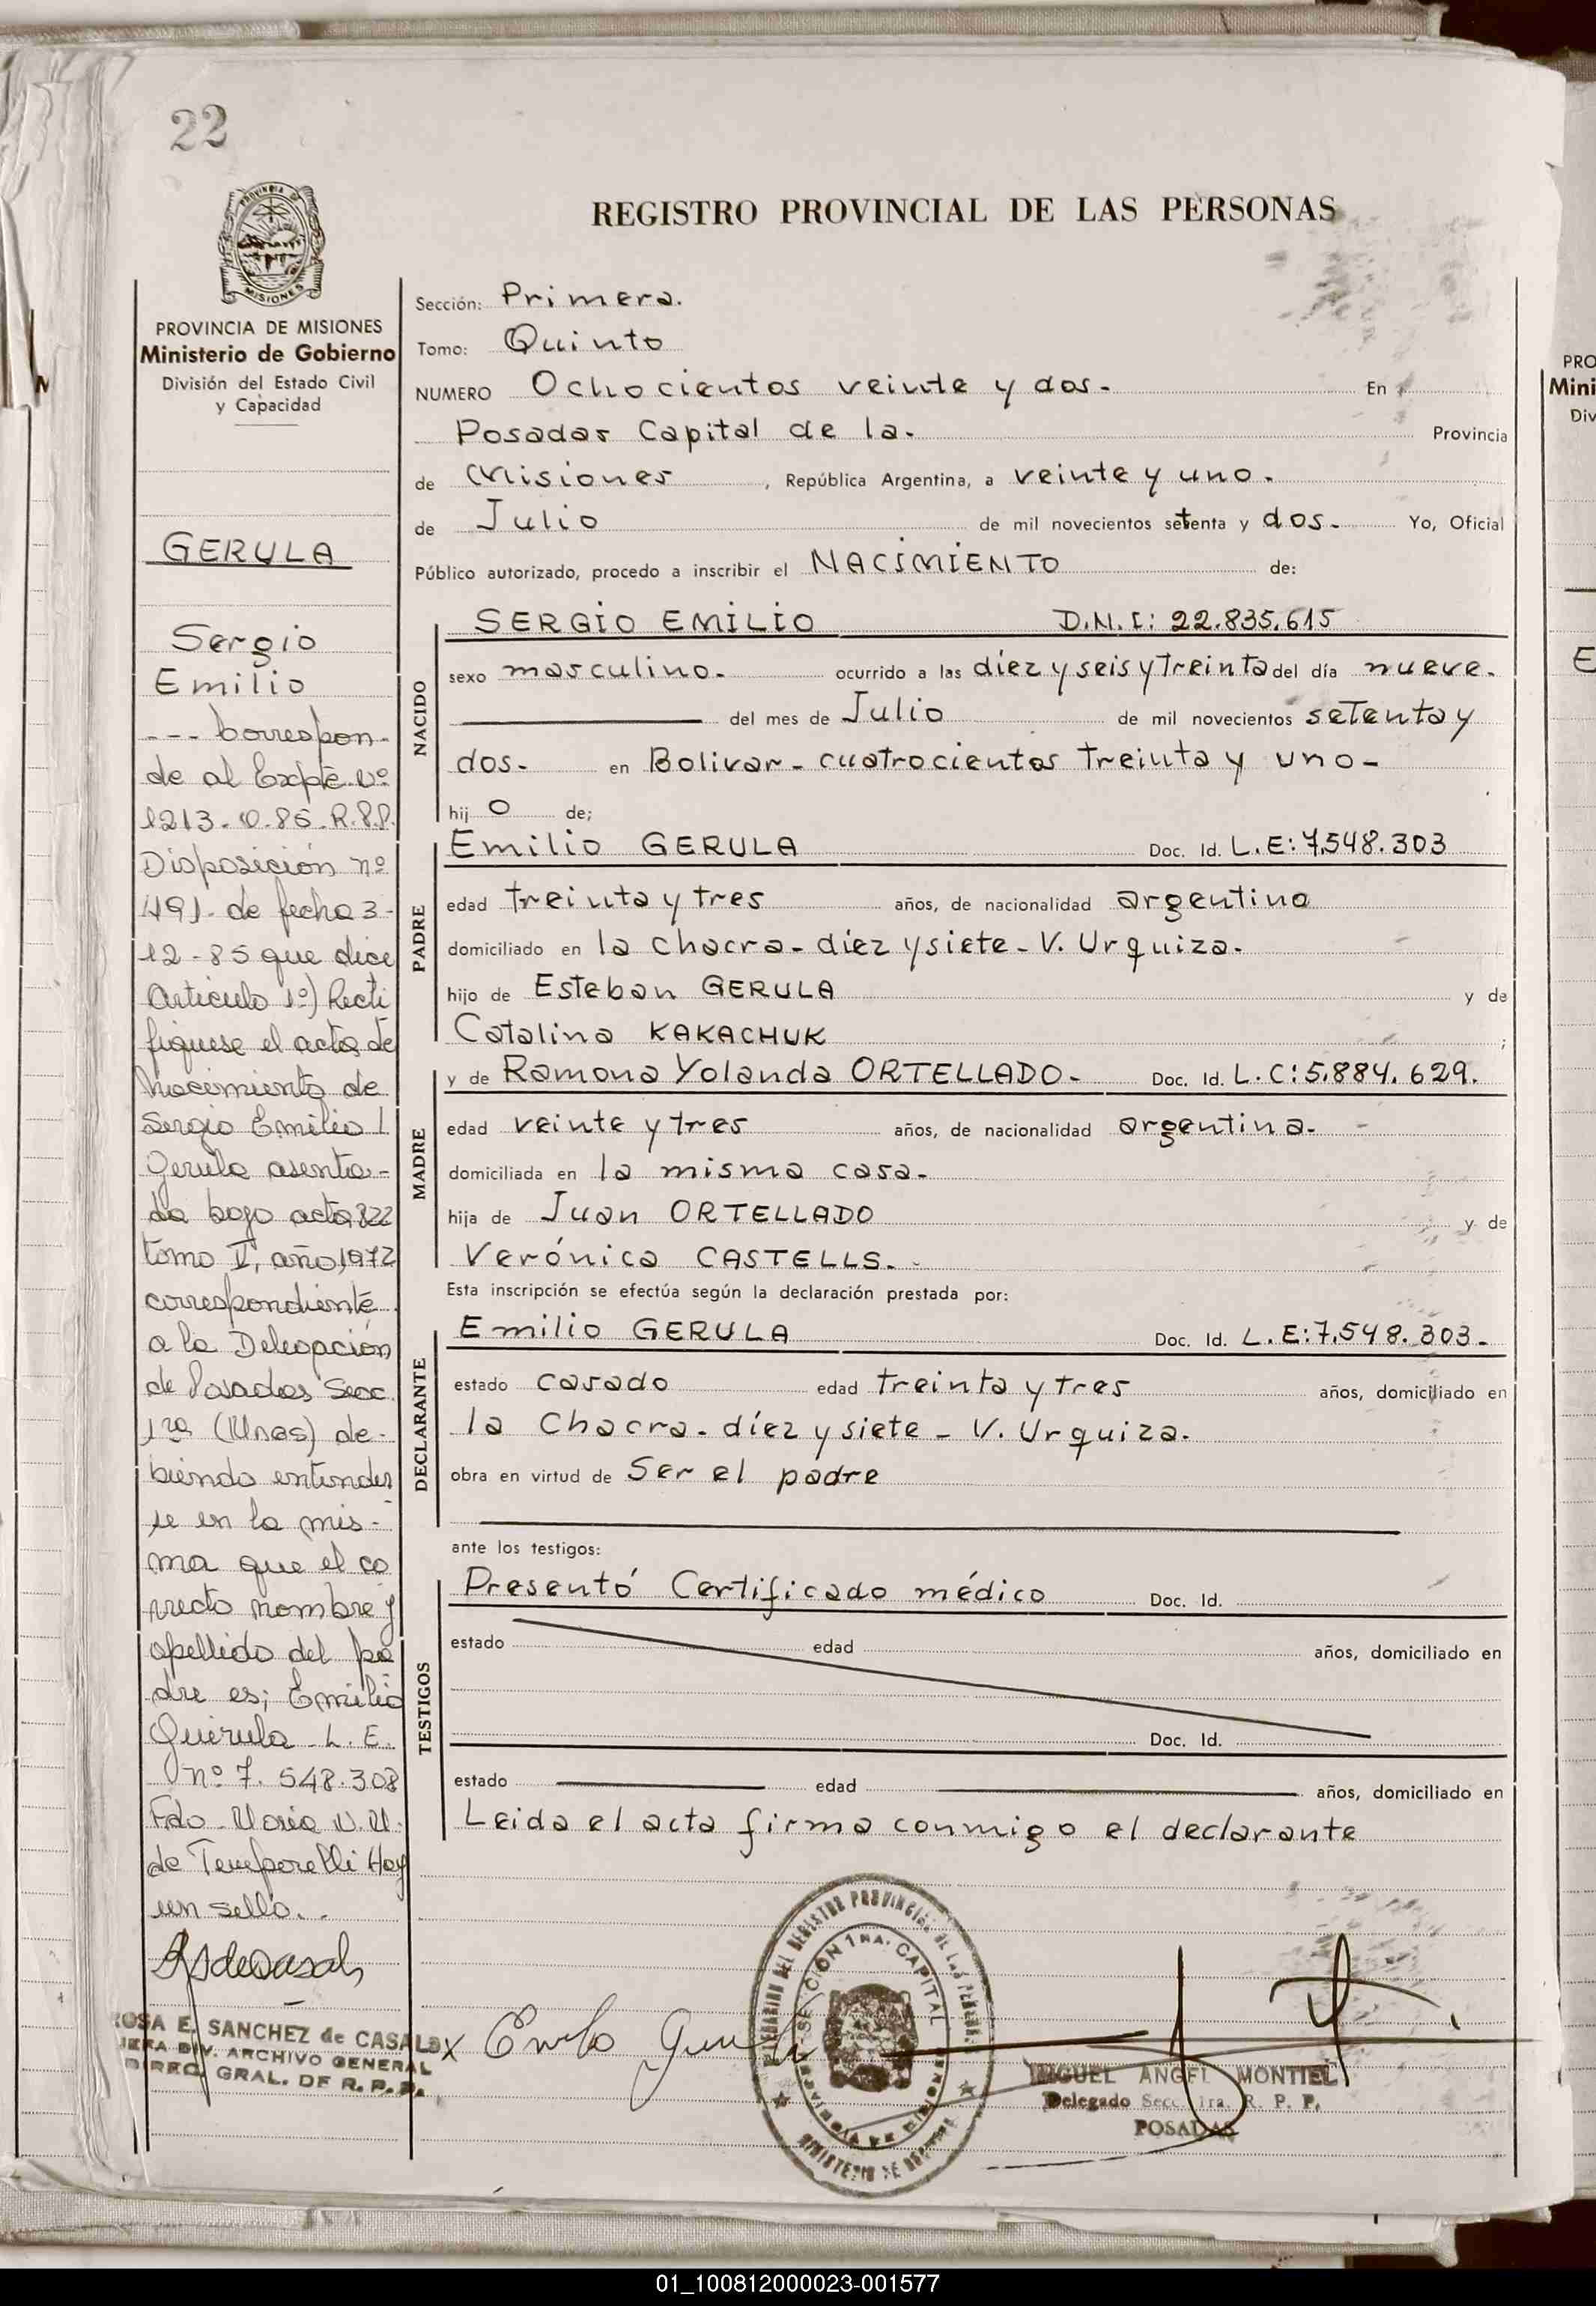 22
REGISTRO PROVINCIAL DE LAS PERSONAS
PROVINCIA DE MISIONES
MISIONES
PROVINCIA DE MISIONES
Ministerio de Gobierno
División del Estado Civil
y Capacidad
GERULA
Sergio
Emilio
--- Correspon-
de al Expte nº
1213-0-85-R.P.P.
Disposición nº
491- de fecha 3-
12-85 que dice
Articulo 1º) Recti
fiquese el acta de
Nacimiento de
Sergio Emilio
Gerula asenta-
da bajo acta 822
tomo V, año 1972
correspondiente
a la Delegación
de Posadas Secc.
1ra (Unas) de-
biendo entender
se en la mis-
ma que el co
rrecto nombre y
apellido del pa
dre es; Emilio
Guerula L. E.
nº 7.548.308
Fdo. Maria
de Temporelli Hay
un sello..
ROSA E. SANCHEZ de CASALS
JEFA DIV. ARCHIVO GENERAL
DIREC. GRAL. DE R. P. P.
Sección: Primera.
Tomo: Quinto
NUMERO Ochocientos veinte y dos- En
Posadas Capital de la. Provincia
de Misiones , República Argentina, a veinte y uno.
de Julio de mil novecientos setenta y dos- Yo, Oficial
Público autorizado, procedo a inscribir el NACIMIENTO de:
NACIDO
SERGIO EMILIO D.N.I: 22.835.615
sexo masculino. ocurrido a las diez y seis y treinta del día nueve.
del mes de Julio de mil novecientos setenta y
dos- en Bolivar - cuatrocientos treinta y uno-
hij o de;
PADRE
Emilio GERULA Doc. Id. L.E: 7.548.303
edad treinta y tres años, de nacionalidad argentino
domiciliado en la chacra- diez y siete- V. Urquiza.
hijo de Esteban GERULA y de
Catalina KAKACHUK ;
MADRE
y de Ramona Yolanda ORTELLADO- Doc. Id. L.C: 5.884.629.
edad veinte y tres años, de nacionalidad argentina.
domiciliada en la misma casa-
hija de Juan ORTELLADO y de
Verónica CASTELLS.
Esta inscripción se efectúa según la declaración prestada por:
DECLARANTE
Emilio GERULA Doc. Id. L.E: 7.548.303-
estado casado edad treinta y tres años, domiciliado en
la Chacra- diez y siete - V. Urquiza.
obra en virtud de Ser el padre
ante los testigos:
TESTIGOS
Presentó Certificado médico Doc. Id.
estado edad años, domiciliado en
Doc. Id.
estado edad años, domiciliado en
Leida el acta firma conmigo el declarante
x Emilio
SECCIÓN 1RA. CAPITAL
MIGUEL ANGEL MONTIEL
Delegado Secc. 1ra. R. P. P.
POSADAS
PRO
Mini
Div
E
01_100812000023-001577